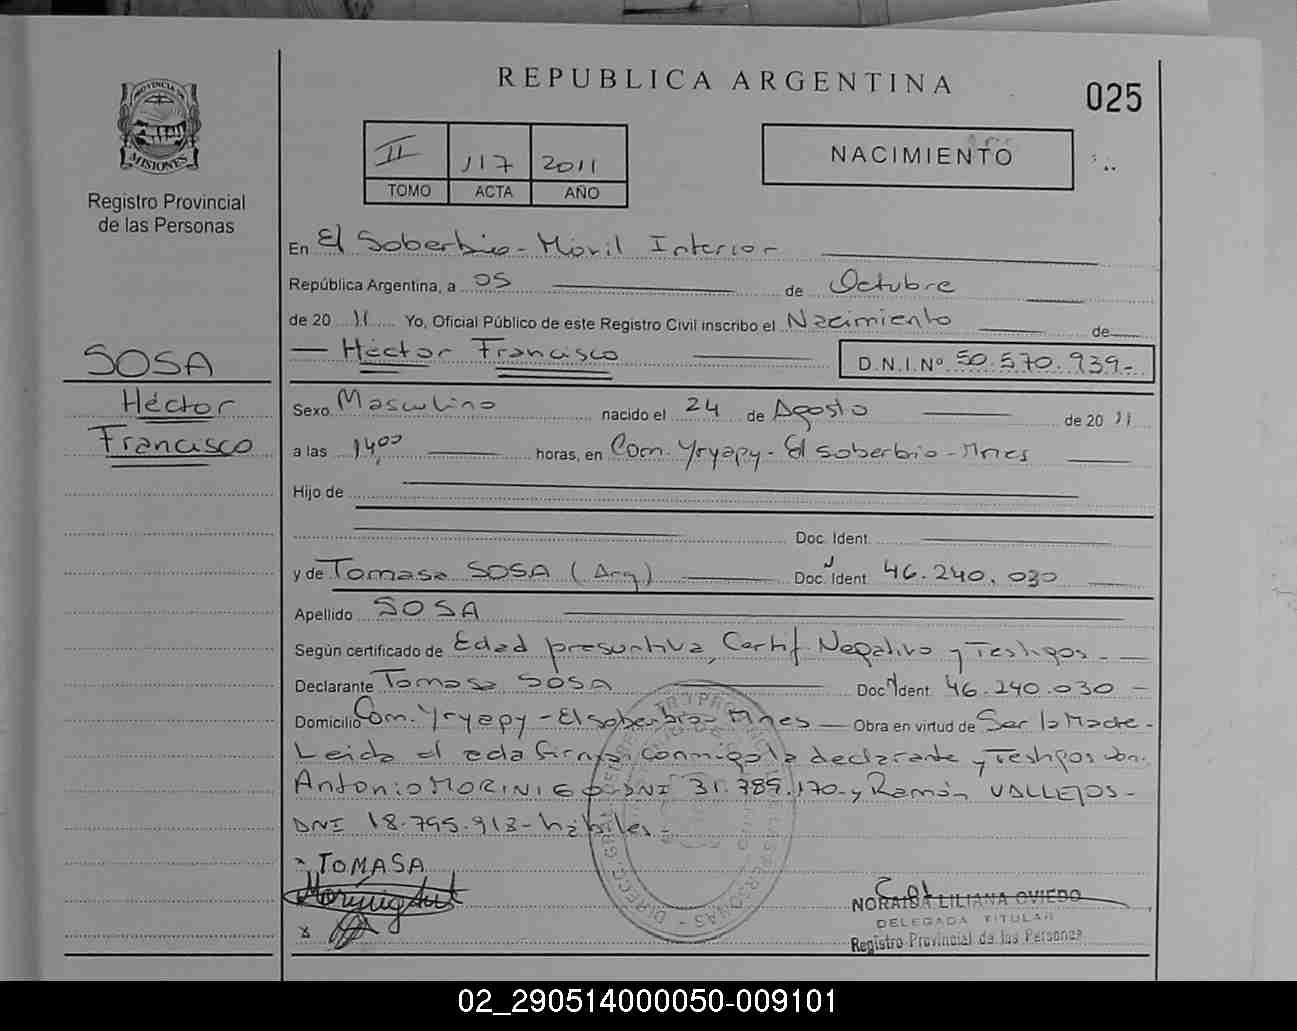 REPUBLICA ARGENTINA
025
PROVINCIA DE
MISIONES
Registro Provincial
de las Personas
II 117 2011
TOMO ACTA AÑO
NACIMIENTO
En El Soberbio - Móvil Interior
República Argentina, a 05 de Octubre
de 20 11 Yo, Oficial Público de este Registro Civil inscribo el Nacimiento de
Héctor Francisco D.N.I.Nº 50.570.939-
SOSA
Héctor
Francisco
Sexo Masculino nacido el 24 de Agosto de 20 11
a las 14,00 horas, en Com. Yryapy - El Soberbio - Mnes
Hijo de
Doc. Ident.
y de Tomasa SOSA (Arg) Doc. Ident. 46.240.030
Apellido SOSA
Según certificado de Edad presuntiva, Certif Negativo y Testigos -
Declarante Tomasa SOSA Doc. Ident. 46.240.030 -
Domicilio Com. Yryapy - El Soberbio - Mnes - Obra en virtud de Ser la Madre -
Leida el acta firma conmigo la declarante y Testigos
Antonio MORINIGO - DNI 31.789.170 - y Ramón VALLEJOS -
DNI 18.795.913 - hábiles -
TOMASA
NORAIDA LILIANA OVIEDO
DELEGADA TITULAR
Registro Provincial de las Personas
02_290514000050-009101